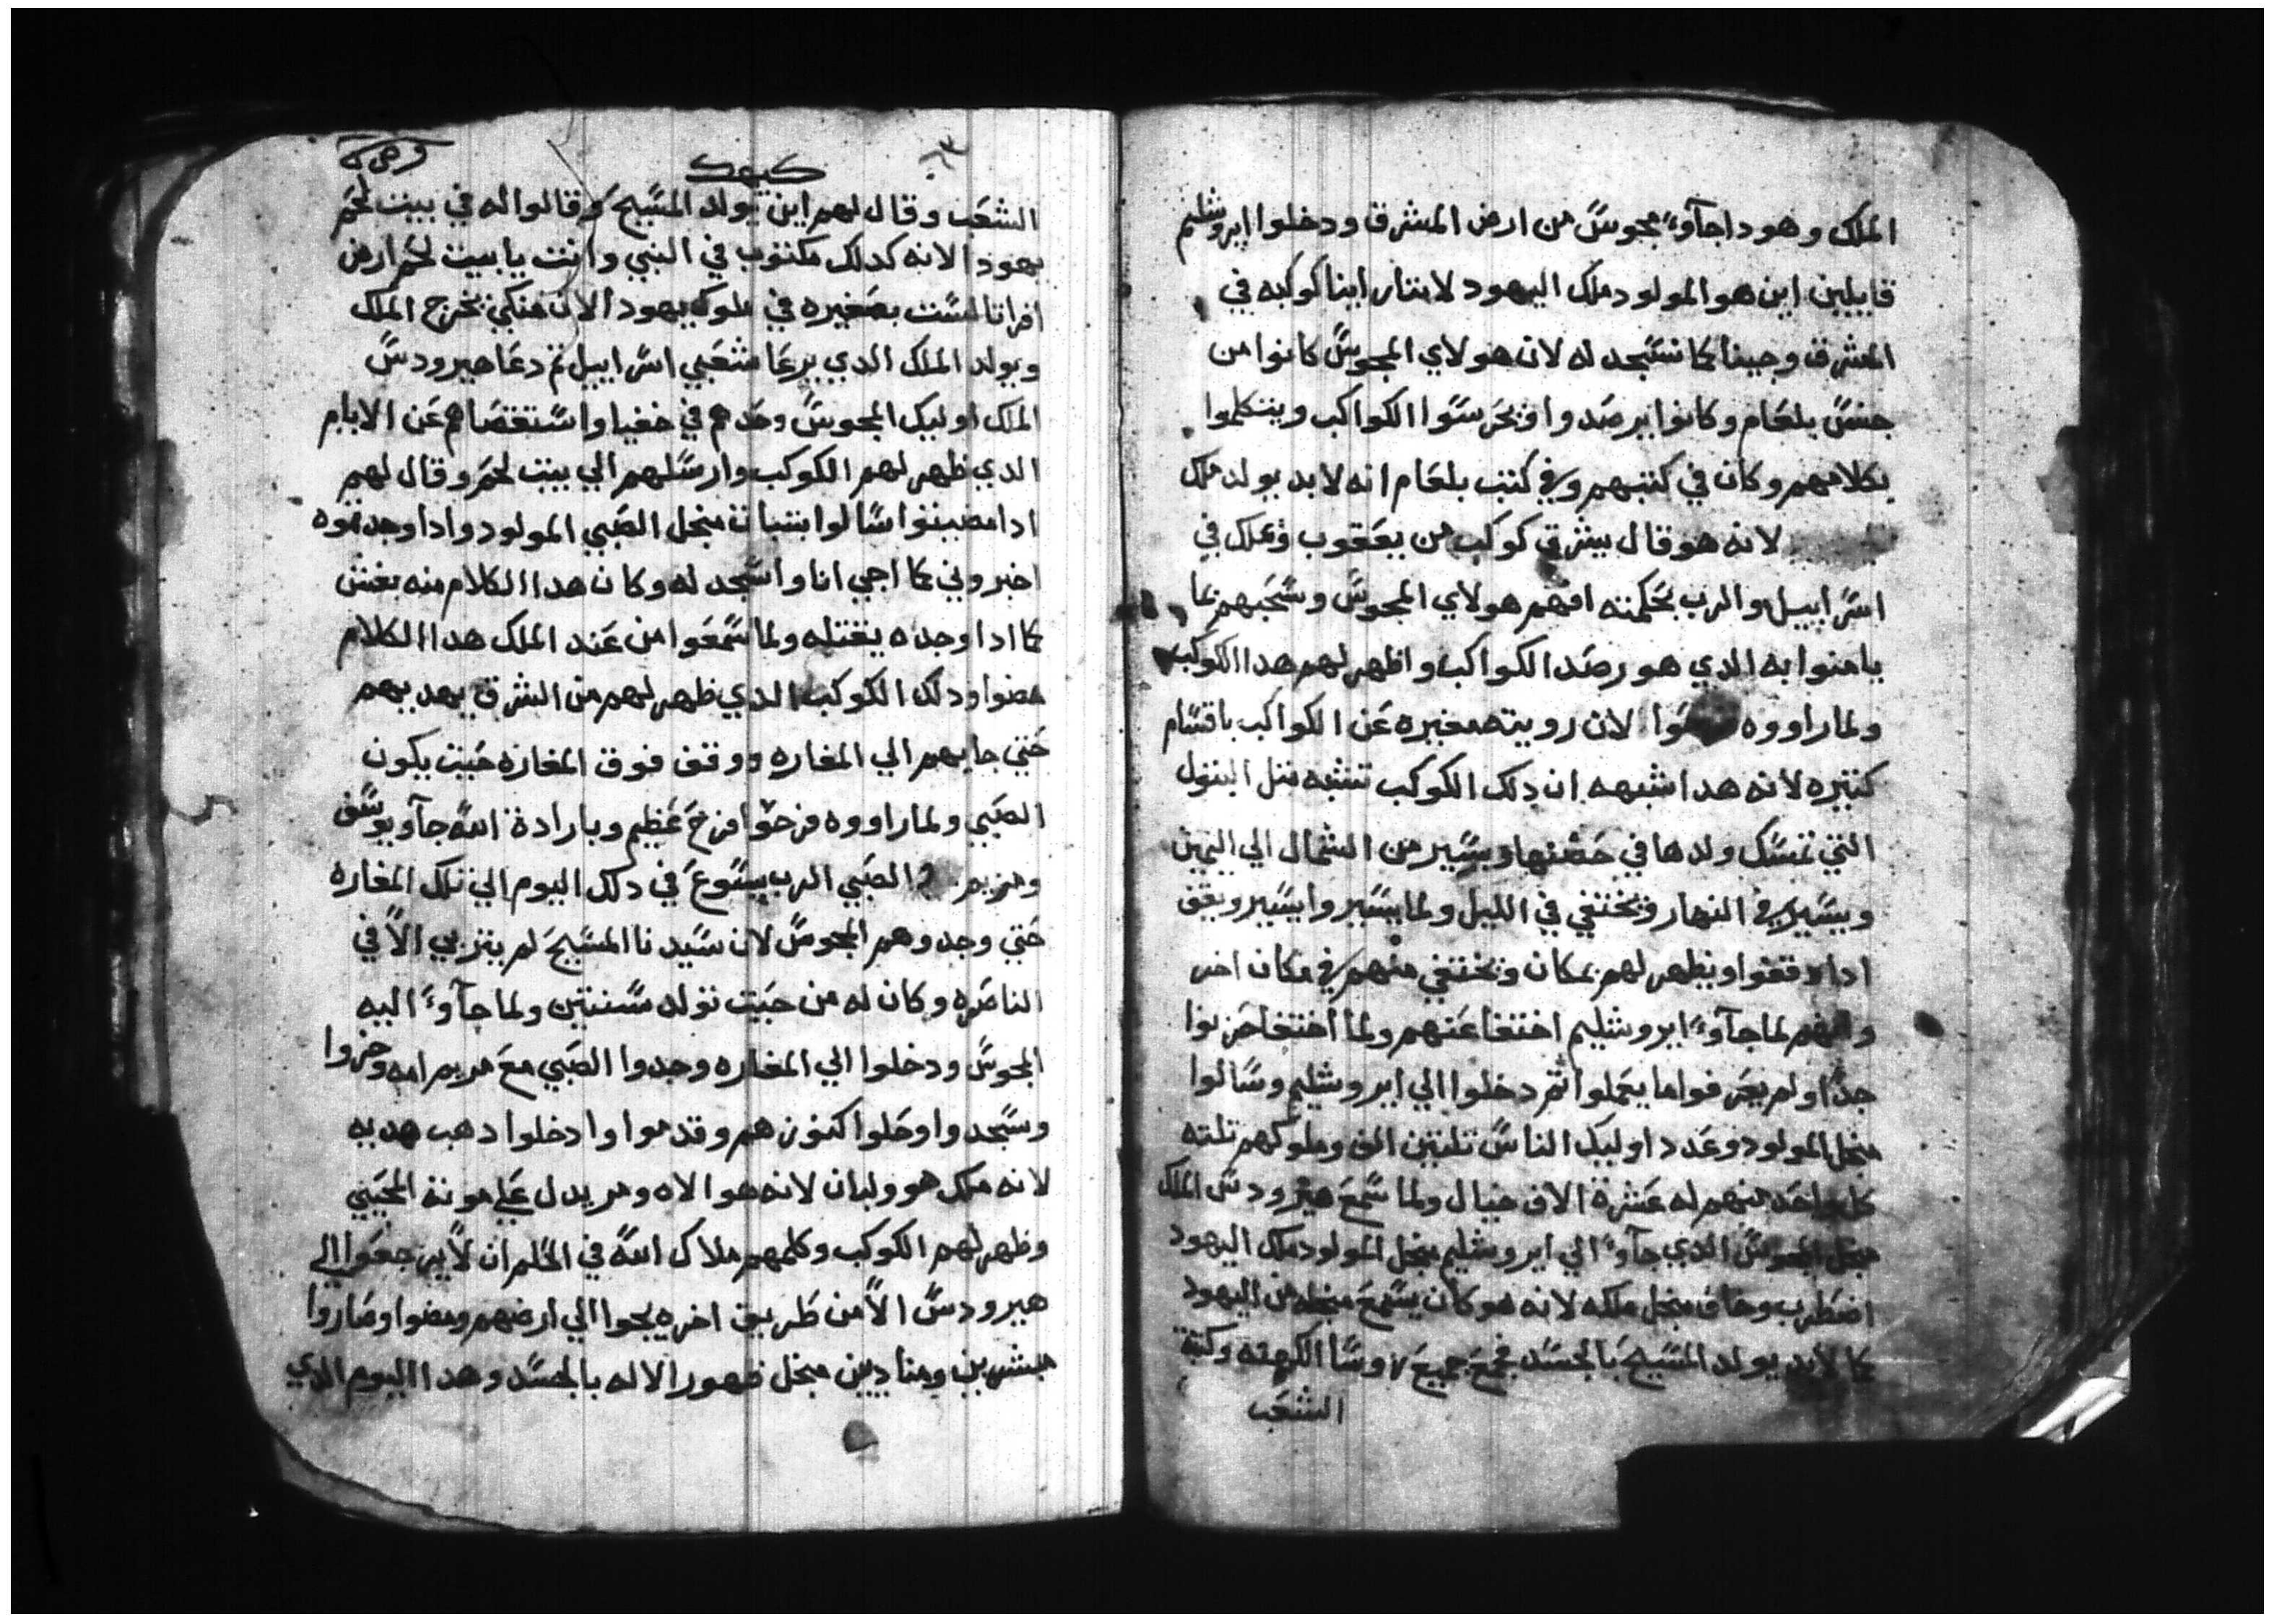 الملك وهودا جآوءً مجوسً من ارض المشرق ودخلوا ايروشليم
قايلين اين هو المولود ملك اليهود لاننا راينا كوكبه في
المشرق وجينا كما نسًجد له لان هولاي المجوسً كانوا من
جنسً بلعام وكانوا يرصدوا ويحرسًوا الكواكب ويتكلموا
بكلامهم وكان في كتبهم وفي كتب بلعام انه لابد يولد ملك
لانه هو قال يشرق كوكب من يعقوب ويملك في
اسًراييل والرب بحكمته افهم هولاي المجوسً وسًحبهم بما
يامنوا به الدي هو رصد الكواكب واظهر لهم هدا الكوكب
ولما راووه لان رويته مغيره عن الكواكب باقسًام
كتيره لانه هدا شبهه ان دلك الكوكب تشبه متل البتول
التي تمسًك ولدها في حضنها ويسًير من الشمال الي اليمين
ويسًير في النهار ويختفي في الليل ولما يسًيروا يسًير ويقف
ادا وقفوا ويظهر لهم بمكان ويختفي منهم في مكان اخر
وانهم لما جآوءً ايروشليم اختفا عنهم ولما اختفا حزنوا
جدًا ولم يعرفوا ما يعملوا تم دخلوا الي ايروشليم وسًالوا
منجل المولود وعدد اوليك الناسً تلتين الف وملوكهم تلته
كل واحد منهم له عشرة الاف خيال ولما سًمع هيرودسً الملك
منجل المجوسً الدي جآوءً الي ايروشليم منجل المولود ملك اليهود
اضطرب وخاف منجل ملكه لانه هو كان يسًمع منجله من اليهود
كما لابد يولد المسًيح بالجسًد فجمع جميع روسًا الكهنه وكتبة
الشعب
كيهك
الشعب وقال لهم اين يولد المسًيح وقالوا له في بيت لحم
يهودا لانه كدلك مكتوب في النبي وانت يا بيت لحم ارض
افراتا لسًت بصغيره في ملوك يهودا لان منكي يخرج الملك
ويولد الملك الدي يرعا شعبي اسًراييل تم دعا هيرودسً
الملك اوليك المجوسً وحدهم في خفيا واسًتقصاهم عن الايام
الدي ظهر لهم الكوكب وارسًلهم الي بيت لحم وقال لهم
ادا مضيتوا سًالوا بتبات منجل الصبي المولود وادا وجدتموه
اخبروني كما اجي انا واسًجد له وكان هدا الكلام منه بغش
كما ادا وجده يقتله ولما سًمعوا من عند الملك هدا الكلام
مضوا ودلك الكوكب الدي ظهر لهم من الشرق يهديهم
حتي جابهم الي المغاره ووقف فوق المغاره حيت يكون
الصبي ولما راووه فرحوا فرح عظيم وبارادة اللهً جآو يوسًف
ومريم و الصبي الرب يسًوع في دلك اليوم الي تلك المغاره
حتي وجدوهم المجوسً لان سًيدنا المسًيح لم يتربي الاً في
الناصره وكان له من حيت تولد سًنتين ولما جآوءً اليه
المجوسً ودخلوا الي المغاره وجدوا الصبي مع مريم امه وخروا
وسًجدوا وحلوا كنوزهم وقدموا وادخلوا دهب هديه
لانه ملك هو ولبان لانه هو الاه ومر يدل علي موته المحيي
وظهر لهم الكوكب وكلمهم ملاك اللهً في الحلم ان لاً يرجعوا الي
هيرودسً الاً من طريق اخره يجوا الي ارضهم ومضوا وصاروا
مبشرين ومناديين منجل ظهور الاله بالجسًد وهدا اليوم الدي